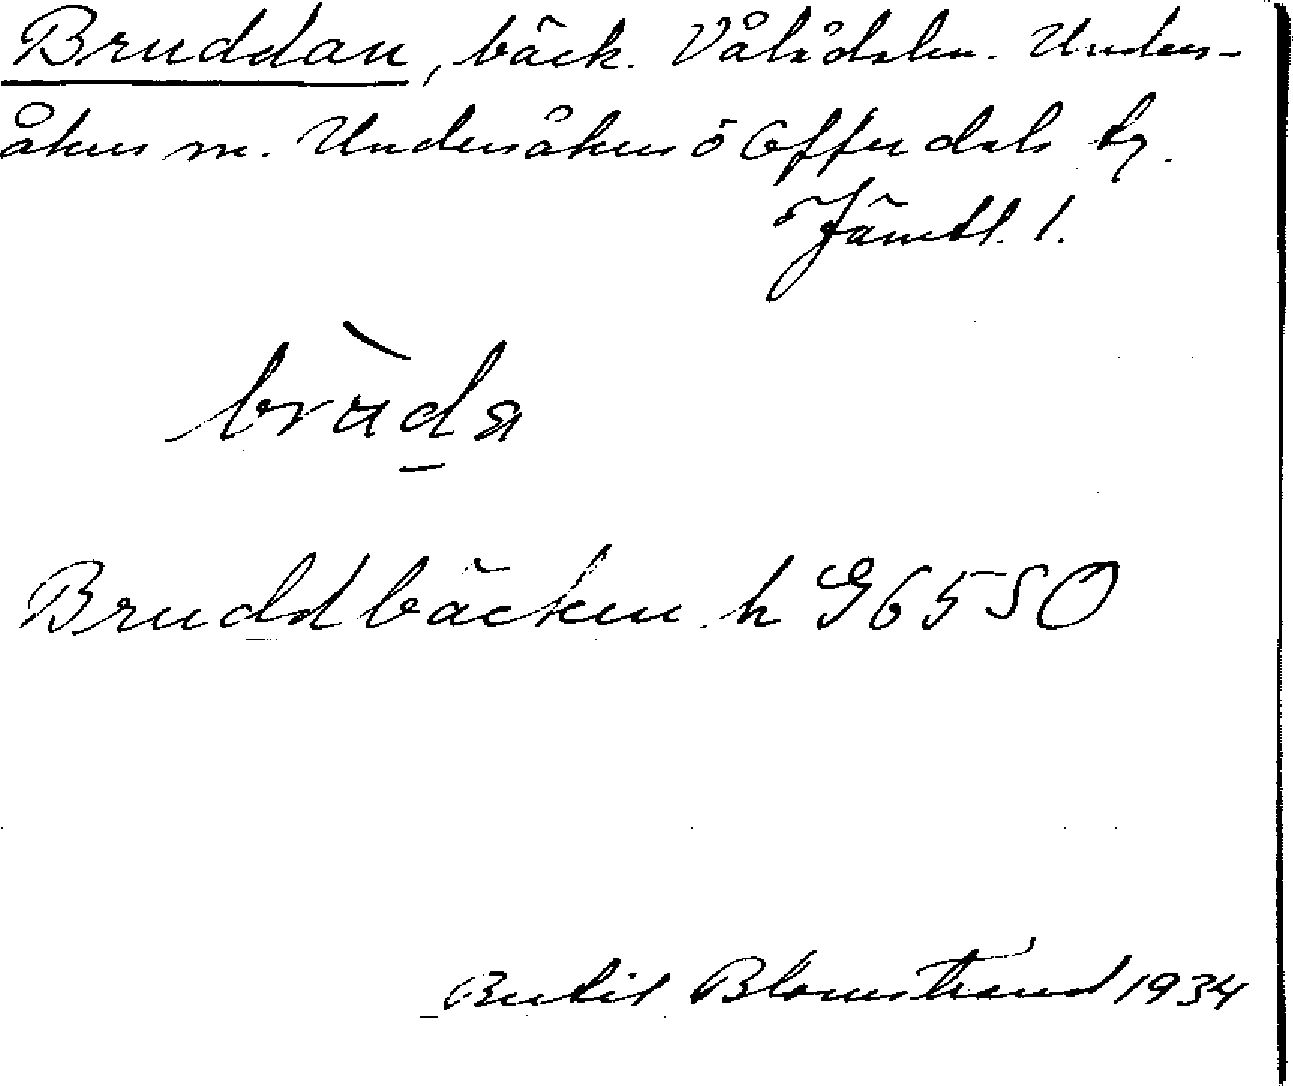 Bruddan, bäck. Vålådalen. Unders-
åkers m. Undersåkers o Offerdals tg.
Jämtl. l.
bruda
Bruddbäcken h G6550
Bertil Blomstrand 1934